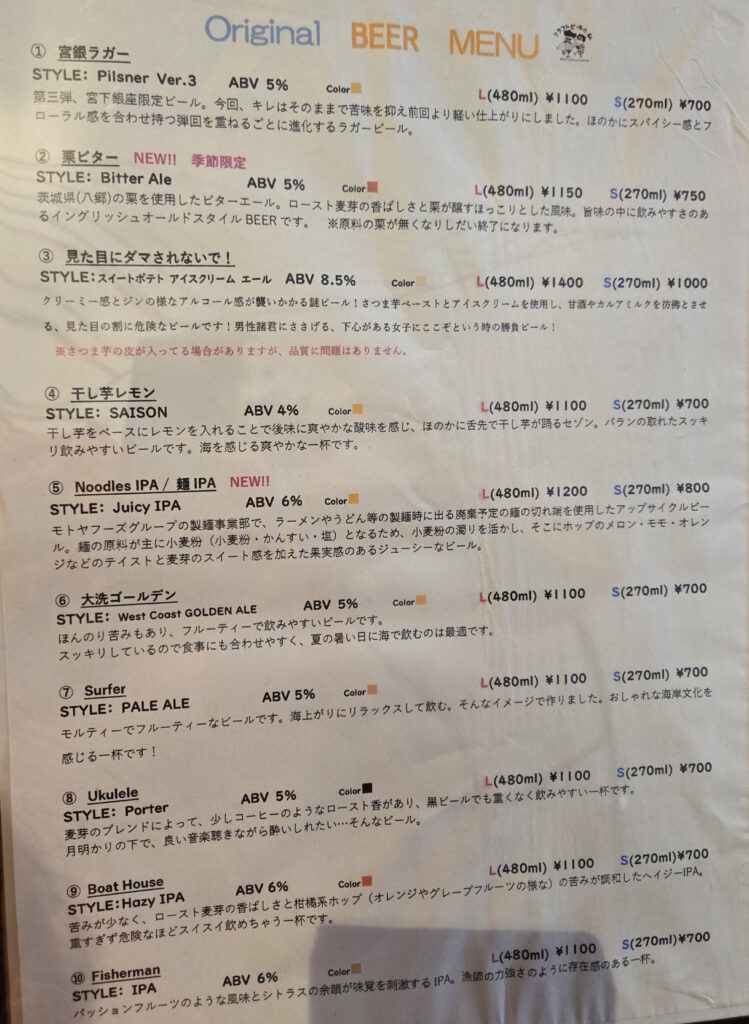 Original BEER MENU
① 宮銀ラガー
STYLE: Pilsner Ver.3 ABV 5% Color L(480ml) ¥1100 S(270ml) ¥700
第三弾、宮下銀座限定ビール。今回、キレはそのままで苦味を抑え前回より軽い仕上がりにしました。ほのかにスパイシー感とフ
ローラル感を合わせ持つ弾回を重ねるごとに進化するラガービール。
② 栗ビター NEW!! 季節限定
STYLE: Bitter Ale ABV 5% Color L(480ml) ¥1150 S(270ml) ¥750
茨城県(八郷)の栗を使用したビターエール。ロースト麦芽の香ばしさと栗が醸すほっこりとした風味。旨味の中に飲みやすさのあ
るイングリッシュオールドスタイルBEERです。 ※原料の栗が無くなりしだい終了になります。
③ 見た目にダマされないで!
STYLE:スイートポテト アイスクリーム エール ABV 8.5% Color L(480ml) ¥1400 S(270ml) ¥1000
クリーミー感とジンの様なアルコール感が襲いかかる謎ビール!さつま芋ペーストとアイスクリームを使用し、甘酒やカルアミルクを彷彿とさせ
る、見た目の割に危険なビールです!男性諸君にささげる、下心がある女子にここぞという時の勝負ビール!
※さつま芋の皮が入ってる場合がありますが、品質に問題はありません。
④ 干し芋レモン
STYLE: SAISON ABV 4% Color L(480ml) ¥1100 S(270ml) ¥700
干し芋をベースにレモンを入れることで後味に爽やかな酸味を感じ、ほのかに舌先で干し芋が踊るセゾン。バランの取れたスッキ
リ飲みやすいビールです。海を感じる爽やかな一杯です。
⑤ Noodles IPA / 麺IPA NEW!!
STYLE: Juicy IPA ABV 6% Color L(480ml) ¥1200 S(270ml) ¥800
モトヤフーズグループの製麺事業部で、ラーメンやうどん等の製麺時に出る廃棄予定の麺の切れ端を使用したアップサイクルビー
ル。麺の原料が主に小麦粉(小麦粉・かんすい・塩)となるため、小麦粉の濁りを活かし、そこにホップのメロン・モモ・オレン
ジなどのテイストと麦芽のスイート感を加えた果実感のあるジューシーなビール。
⑥ 大洗ゴールデン
STYLE: West Coast GOLDEN ALE ABV 5% Color L(480ml) ¥1100 S(270ml) ¥700
ほんのり苦みもあり、フルーティーで飲みやすいビールです。
スッキリしているので食事にも合わせやすく、夏の暑い日に海で飲むのは最適です。
⑦ Surfer
STYLE: PALE ALE ABV 5% Color L(480ml) ¥1100 S(270ml) ¥700
モルティーでフルーティーなビールです。海上がりにリラックスして飲む。そんなイメージで作りました。おしゃれな海岸文化を
感じる一杯です!
⑧ Ukulele
STYLE: Porter ABV 5% Color L(480ml) ¥1100 S(270ml) ¥700
麦芽のブレンドによって、少しコーヒーのようなロースト香があり、黒ビールでも重くなく飲みやすい一杯です。
月明かりの下で、良い音楽聴きながら酔いしれたい…そんなビール。
⑨ Boat House
STYLE:Hazy IPA ABV 6% Color L(480ml) ¥1100 S(270ml)¥700
苦みが少なく、ロースト麦芽の香ばしさと柑橘系ホップ(オレンジやグレープフルーツの様な)の苦みが調和したヘイジーIPA。
重すぎず危険なほどスイスイ飲めちゃう一杯です。
⑩ Fisherman
STYLE: IPA ABV 6% Color L(480ml) ¥1100 S(270ml)¥700
パッションフルーツのような風味とシトラスの余韻が味覚を刺激するIPA。漁師の力強さのように存在感のある一杯。